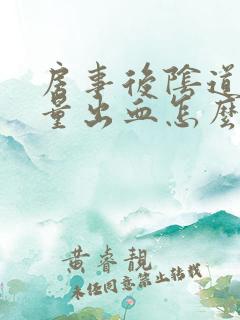 房事後陰道
量出血怎麼
黃睿靚
未經同意禁止轉載